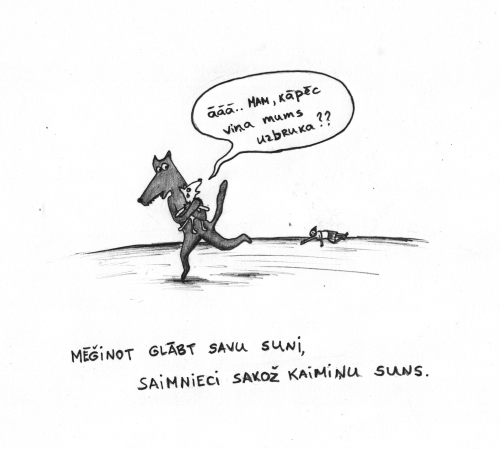 āāā.. MAM, KĀPĒC
viņa mums
uzbruka??
MĒĢINOT GLĀBT SAVU SUNI,
SAIMNIECI SAKOŽ KAIMIŅU SUNS.